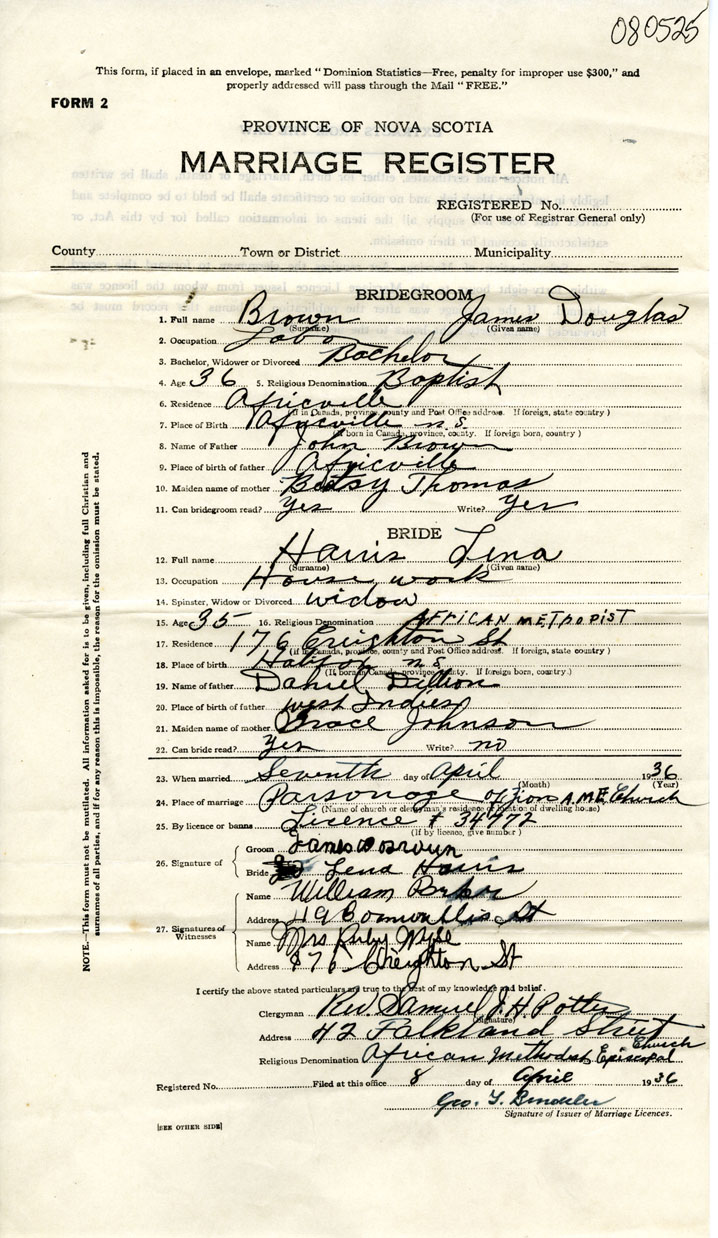 080525
This form, if placed in an envelope, marked "Dominion Statistics—Free, penalty for improper use $300," and
properly addressed will pass through the Mail "FREE."
FORM 2
PROVINCE OF NOVA SCOTIA
MARRIAGE REGISTER
REGISTERED No.
(For use of Registrar General only)
County Town or District Municipality
BRIDEGROOM
1. Full name Brown James Douglas
(Surname) (Given name)
2. Occupation Labor
3. Bachelor, Widower or Divorced Bachelor
4. Age 36 5. Religious Denomination Baptist
6. Residence Africville
(If in Canada, province, county and Post Office address. If foreign, state country)
7. Place of Birth Africville n.s.
(If born in Canada, province, county. If foreign born, country)
8. Name of Father John Brown
9. Place of birth of father Africville
10. Maiden name of mother Betsy Thomas
11. Can bridegroom read? Yes Write? Yes
BRIDE
12. Full name Harris Lena
(Surname) (Given name)
13. Occupation House work
14. Spinster, Widow or Divorced widow
15. Age 35 16. Religious Denomination AFRICAN METHODIST
17. Residence 176 Creighton St
(If in Canada, province, county and Post Office address. If foreign, state country)
18. Place of birth Halifax n.s
(If born in Canada, province, county. If foreign born, country.)
19. Name of father Daniel Dillon
20. Place of birth of father west Indies
21. Maiden name of mother Grace Johnson
22. Can bride read? Yes Write? no
23. When married Seventh day of April 1936
(Month) (Year)
24. Place of marriage Parsonage of Zion A.M.E. Church
(Name of church or clergyman's residence or location of dwelling house)
25. By licence or banns Licence # 34772
(If by licence, give number)
26. Signature of
Groom James Brown
Bride Lena Harris
27. Signatures of Witnesses
Name William
Address 119 Cornwallis St
Name Mrs Ruby
Address 176 Creighton St
I certify the above stated particulars are true to the best of my knowledge and belief.
Clergyman Rev Samuel J. H. Potter
(Signature)
Address 42 Falkland Street
Religious Denomination African Methodist Episcopal Church
Registered No. Filed at this office 8 day of April 1936
Geo.
Signature of Issuer of Marriage Licences.
[SEE OTHER SIDE]
NOTE.—This form must not be mutilated. All information asked for is to be given, including full Christian and
surnames of all parties, and if for any reason this is impossible, the reason for the omission must be stated.